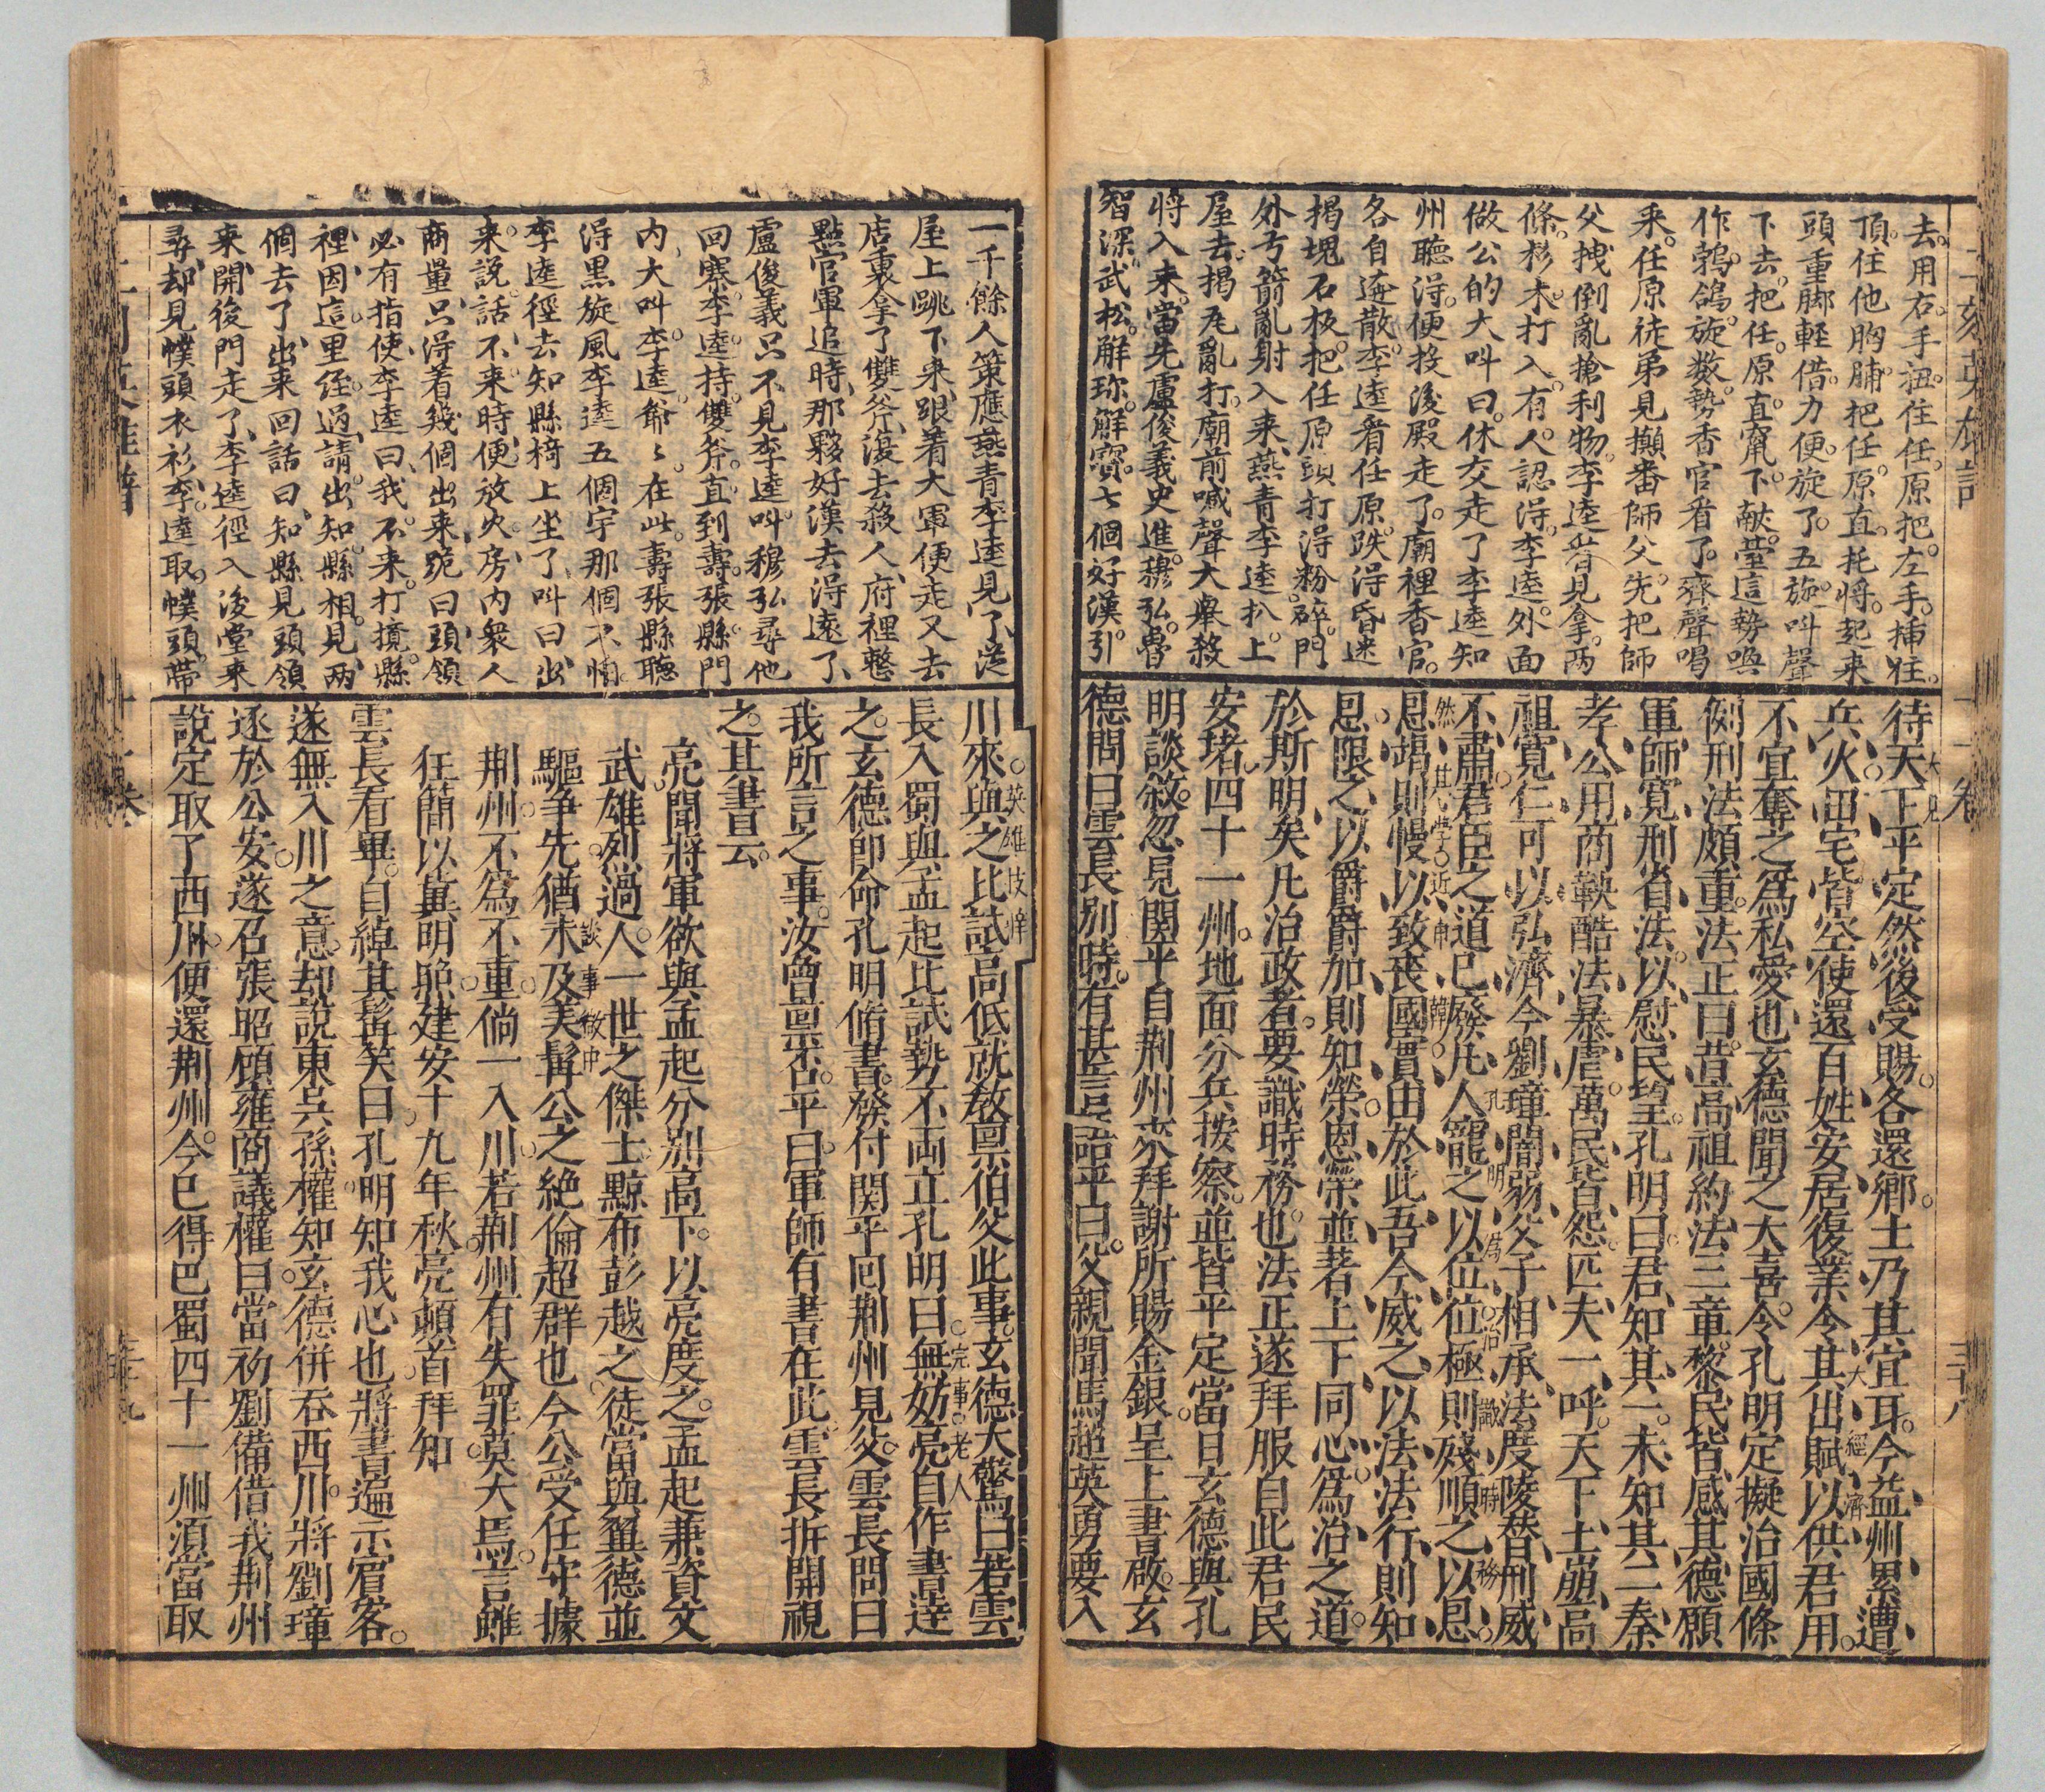 去用右手扭住任原把左手插住
頂住他胸脯把任原直托將起來
頭重脚輕借力便旋了五旋叫聲
下去把任原直竄下献臺這勢喚
作鵓鴿旋数勢香官看了齊聲喝
采任原徒弟見攧番師父先把師
父拽倒亂搶利物李逵看見拿兩
條杉木打入有人認得李逵外面
做公的大叫曰休交走了李逵知
州聽得便投後殿走了廟裡香官
各自逃散李逵看任原跌得昏迷
揭塊石板把任原頭打得粉碎門
外弓箭亂射入来燕青李逵扒上
屋去揭瓦亂打廟前喊聲大舉殺
將入来當先盧俊義史進穆弘魯
智深武松解珍解寶七個好漢引
待天下平定然後受賜各還鄉土乃其宜耳今益州累遭
兵火田宅皆空使還百姓安居復業令其出賦以供君用
不宜奪之爲私愛也玄德聞之大喜令孔明定擬治國條
例刑法頗重法正曰昔高祖約法三章黎民皆感其德願
軍師寬刑省法以慰民望孔明曰君知其一未知其二秦
孝公用商鞅酷法暴虐萬民皆怨匹夫一呼天下土崩高
祖寬仁可以弘濟今劉璋闇弱父子相承法度陵替刑威
不肅君臣之道已廢凡人寵之以位位極則殘順之以恩
恩竭則慢以致喪國實由於此吾今威之以法法行則知
恩限之以爵爵加則知榮恩榮並著上下同心爲治之道
於斯明矣凡治政者要識時務也法正遂拜服自此君民
安堵四十一州地面分兵按察並皆平定當日玄德與孔
明談叙忽見関平自荆州來拜謝所賜金銀呈上書啟玄
德問曰雲長別時有甚言語平曰父親聞馬超英勇要入
一千餘人策應燕青李逵見了從
屋上跳下来跟着大軍便走又去
店裏拿了雙斧復去殺人府裡整
點官軍追時那夥好漢去得遠了
盧俊義只不見李逵叫穆弘尋他
回寨李逵持雙斧直到壽張縣門
内大叫李逵爺爺在此壽張縣聽
得黑旋風李逵五個字那個不怕
李逵徑去知縣椅上坐了叫曰出
来說話不来時便放火房内衆人
商量只得着幾個出来跪曰頭領
必有指使李逵曰我不来打攪縣
裡因這里經過請出知縣相見兩
個去了出来回話曰知縣見頭領
来開後門走了李逵徑入後堂来
尋却見幞頭衣衫李逵取幞頭帶
川來與之比試高低就教禀伯父此事玄德大驚曰若雲
長入蜀與孟起比試勢不両立孔明曰無妨亮自作書達
之玄德即命孔明脩書發付関平回荆州見父雲長問曰
我所言之事汝曾禀否平曰軍師有書在此雲長拆開視
之其書云
亮聞將軍欲與孟起分別高下以亮度之孟起兼資文
武雄烈過人一世之傑士黥布彭越之徒當與翼德並
驅爭先猶未及美髯公之絶倫超群也今公受任守據
荆州不爲不重倘一入川若荆州有失罪莫大焉言雖
狂簡以冀明照建安十九年秋亮頓首拜知
雲長看畢自綽其髯笑曰孔明知我心也將書遍示賓客
遂無入川之意却說東吳孫權知玄德併吞西川將劉璋
逐於公安遂召張昭顧雍商議權曰當初劉備借我荆州
說定取了西川便還荆州今已得巴蜀四十一州須當取